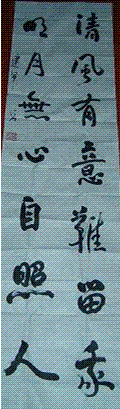 清風有意難留我
明月無心自照人